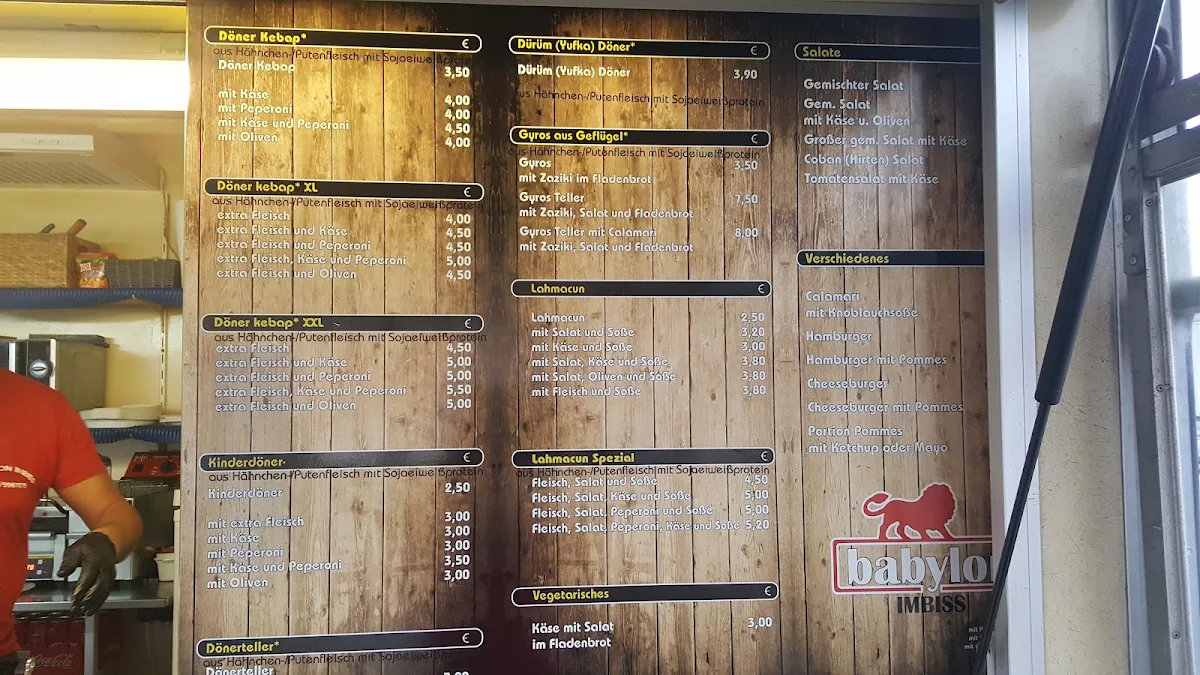 Döner Kebap* €
aus Hähnchen-/Putenfleisch mit Sojaeiweißprotein
Döner Kebap 3,50
mit Käse 4,00
mit Peperoni 4,00
mit Käse und Peperoni 4,50
mit Oliven 4,00
Döner kebap* XL €
aus Hähnchen-/Putenfleisch mit Sojaeiweißprotein
extra Fleisch 4,00
extra Fleisch und Käse 4,50
extra Fleisch und Peperoni 4,50
extra Fleisch, Käse und Peperoni 5,00
extra Fleisch und Oliven 4,50
Döner kebap* XXL €
aus Hähnchen-/Putenfleisch mit Sojaeiweißprotein
extra Fleisch 4,50
extra Fleisch und Käse 5,00
extra Fleisch und Peperoni 5,00
extra Fleisch, Käse und Peperoni 5,50
extra Fleisch und Oliven 5,00
Kinderdöner* €
aus Hähnchen-/Putenfleisch mit Sojaeiweißprotein
Kinderdöner 2,50
mit extra Fleisch 3,00
mit Käse 3,00
mit Peperoni 3,00
mit Käse und Peperoni 3,50
mit Oliven 3,00
Dönerteller* €
aus Hähnchen-/Putenfleisch mit Sojaeiweißprotein
Dönerteller
Dürüm (Yufka) Döner* €
Dürüm (Yufka) Döner 3,90
aus Hähnchen-/Putenfleisch mit Sojaeiweißprotein
Gyros aus Geflügel* €
aus Hähnchen-/Putenfleisch mit Sojaeiweißprotein
Gyros 3,50
mit Zaziki im Fladenbrot
Gyros Teller 7,50
mit Zaziki, Salat und Fladenbrot
Gyros Teller mit Calamari 8,00
mit Zaziki, Salat und Fladenbrot
Lahmacun €
Lahmacun 2,50
mit Salat und Soße 3,20
mit Käse und Soße 3,00
mit Salat, Käse und Soße 3,80
mit Salat, Oliven und Soße 3,80
mit Fleisch und Soße 3,80
Lahmacun Spezial €
aus Hähnchen-/Putenfleisch mit Sojaeiweißprotein
Fleisch, Salat und Soße 4,50
Fleisch, Salat, Käse und Soße 5,00
Fleisch, Salat, Peperoni und Soße 5,00
Fleisch, Salat, Peperoni, Käse und Soße 5,20
Vegetarisches €
Käse mit Salat 3,00
im Fladenbrot
Salate
Gemischter Salat
Gem. Salat
mit Käse u. Oliven
Großer gem. Salat mit Käse
Coban (Hirten) Salat
Tomatensalat mit Käse
Verschiedenes
Calamari
mit Knoblauchsoße
Hamburger
Hamburger mit Pommes
Cheeseburger
Cheeseburger mit Pommes
Portion Pommes
mit Ketchup oder Mayo
babylon
IMBISS
Coca-Cola